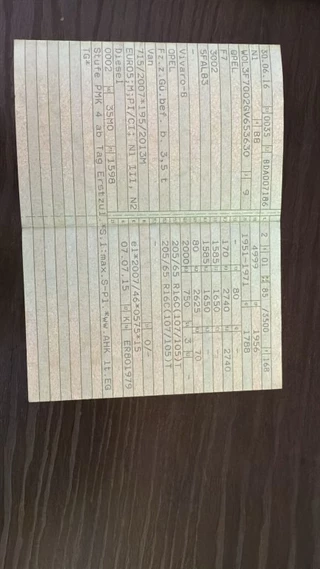 30.06.16 0035 8DA00718
N1 88
W0L3F7002GV653630 9
OPEL
F7
3002
5FAL83
-
Vivaro-B
OPEL
Fz.z.Gü.bef. b. 3,5 t
Van
715/2007*195/2013M
EURO5;M;PI/CI; N1 III, N2
Diesel
0002 35M0 1598
Stufe PMK 4 ab Tag Erstzul *S.1:max.S-Pl *ww.AHK lt.EG
TG*
2 0 85 /3500 168
4999 1956
1951-1971 1788
- 80 -
170 2740 2740
1585 1650 -
1585 1650 -
80 2625 70
2000 750 3 -
205/65 R16C(107/105)T
205/65 R16C(107/105)T
-
- 0/-
e1*2007/46*0575*15
07.07.15 K ER801979